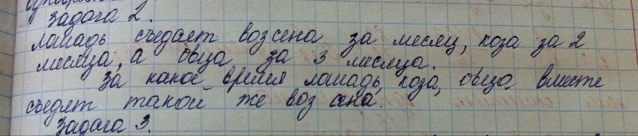 Задача 2.
Лошадь съедает воз сена за месяц, коза за 2
месяца, а овца за 3 месяца.
За какое время лошадь, коза, овца вместе
съедят такой же воз сена.
Задача 3.